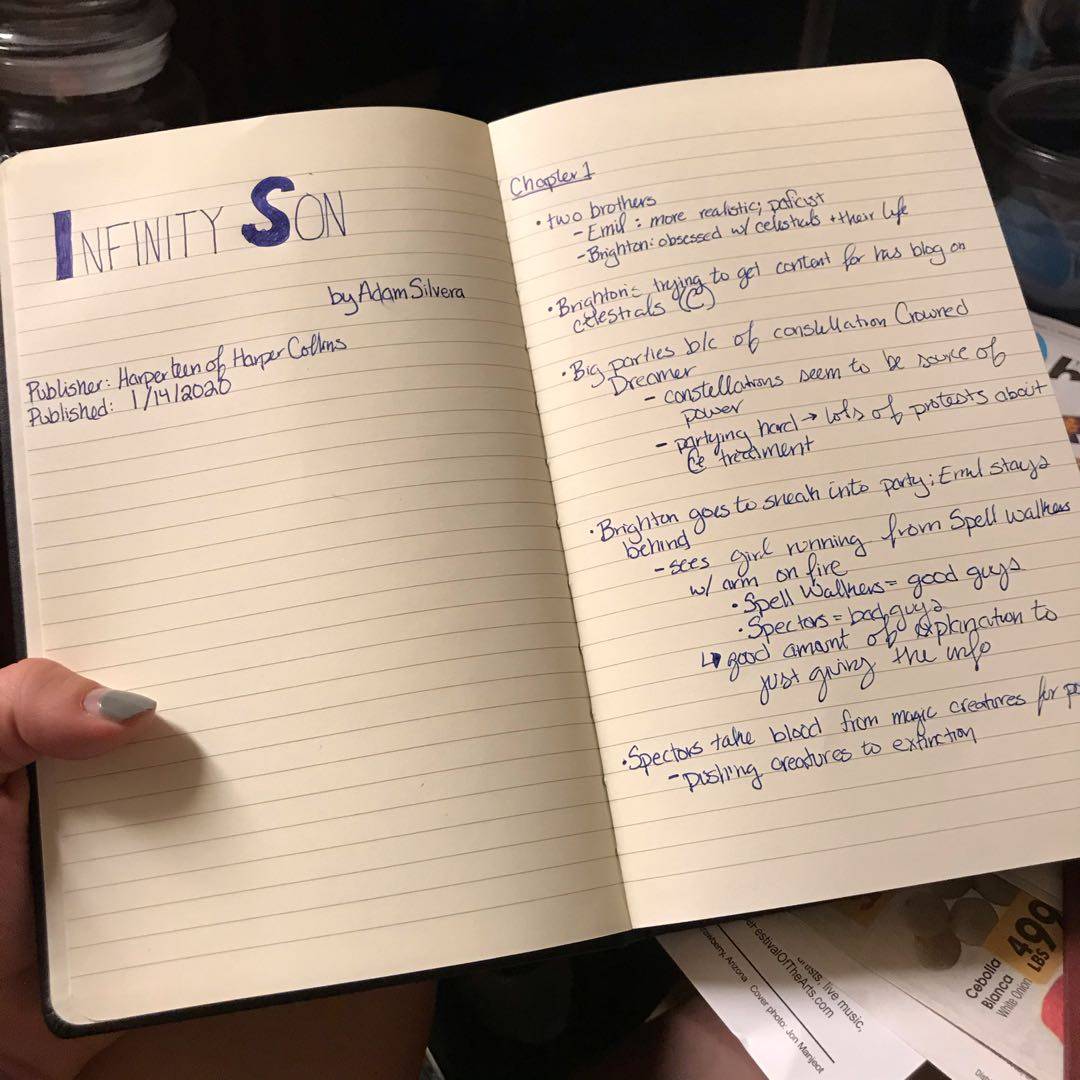 INFINITY SON
by Adam Silvera
Publisher: Harperteen of Harper Collins
Published: 1/14/2020
Chapter 1
• two brothers
- Emil: more realistic; paficist
- Brighton: obsessed w/ celestials + their life
• Brighton: trying to get content for his blog on
celestials (C)
• Big parties b/c of constellation Crowned
Dreamer
- constellations seem to be source of
power
- partying hard → lots of protests about
treatment
• Brighton goes to sneak into party; Emil stays
behind
- sees girl running from Spell walkers
w/ arm on fire
• Spell Walkers = good guys
• Spectors = bad guys
↳ good amount of explanation to
just giving the info
• Spectors take blood from magic creatures for
- pushing creatures to extinction
strawberry, Arizona Cover photo: Jon Manjeot
FestivalOfTheArts.com
live music,
Cebolla
Bianca
White Onion
499
LBS